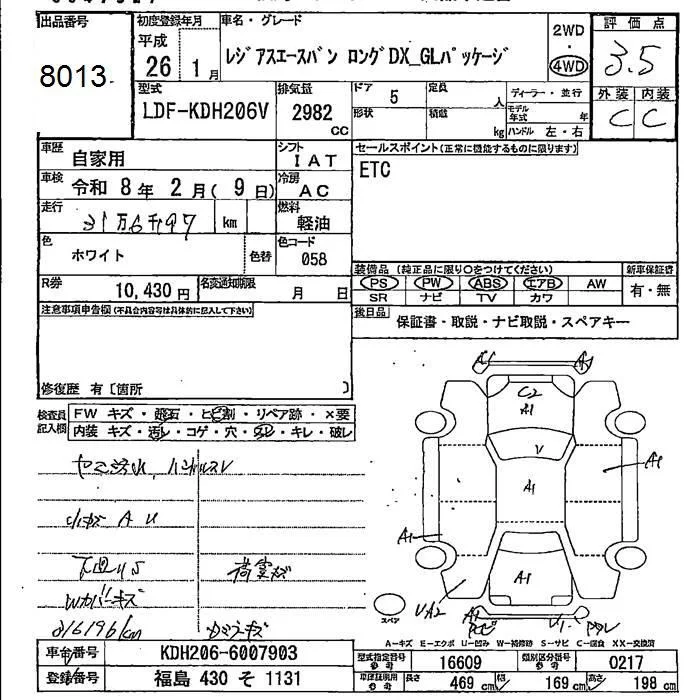 出品番号
8013
初度登録年月
平成
26 1月
車名・グレード
レジアスエースバン ロングDX_GLパッケージ
2WD
・
4WD
評価点
3.5
外装 内装
C C
型式
LDF-KDH206V
排気量
2982
CC
ドア
5
定員
人
形状
積載
kg
ディーラー・並行
モデル年式
年
ハンドル 左・右
車歴
自家用
シフト
IAT
車検
令和 8年 2月( 9日)
冷房
AC
走行
31万6千197
km
燃料
軽油
色
ホワイト
色替
色コード
058
R券
10,430円
名変通知期限
月 日
セールスポイント(正常に機能するものに限ります)
ETC
装備品 (純正品に限り○をつけてください)
新車保証書
PS PW ABS エアB AW
SR ナビ TV カワ
有・無
後日品
保証書・取説・ナビ取説・スペアキー
注意事項申告欄(不具合内容等は具体的に記入して下さい)
修復歴 有〔箇所 〕
検査員
記入欄
FW キズ・飛石・ヒビ割・リペア跡・×要
内装 キズ・汚レ・コゲ・穴・スレ・キレ・破レ
A U
下回りS
荷室キズ
Wカバーキズ
316196km
C2
A1
V
A1
A1
A1
A1
A1
UA2
スペア
A-キズ E-エクボ U-凹み W-補修跡 S-サビ C-腐食 XX-交換済
車台番号
KDH206-6007903
登録番号
福島 430 そ 1131
型式指定番号
参考
16609
類別区分番号
参考
0217
車庫証明用
参考
長さ
469 cm
幅
169 cm
高さ
198 cm